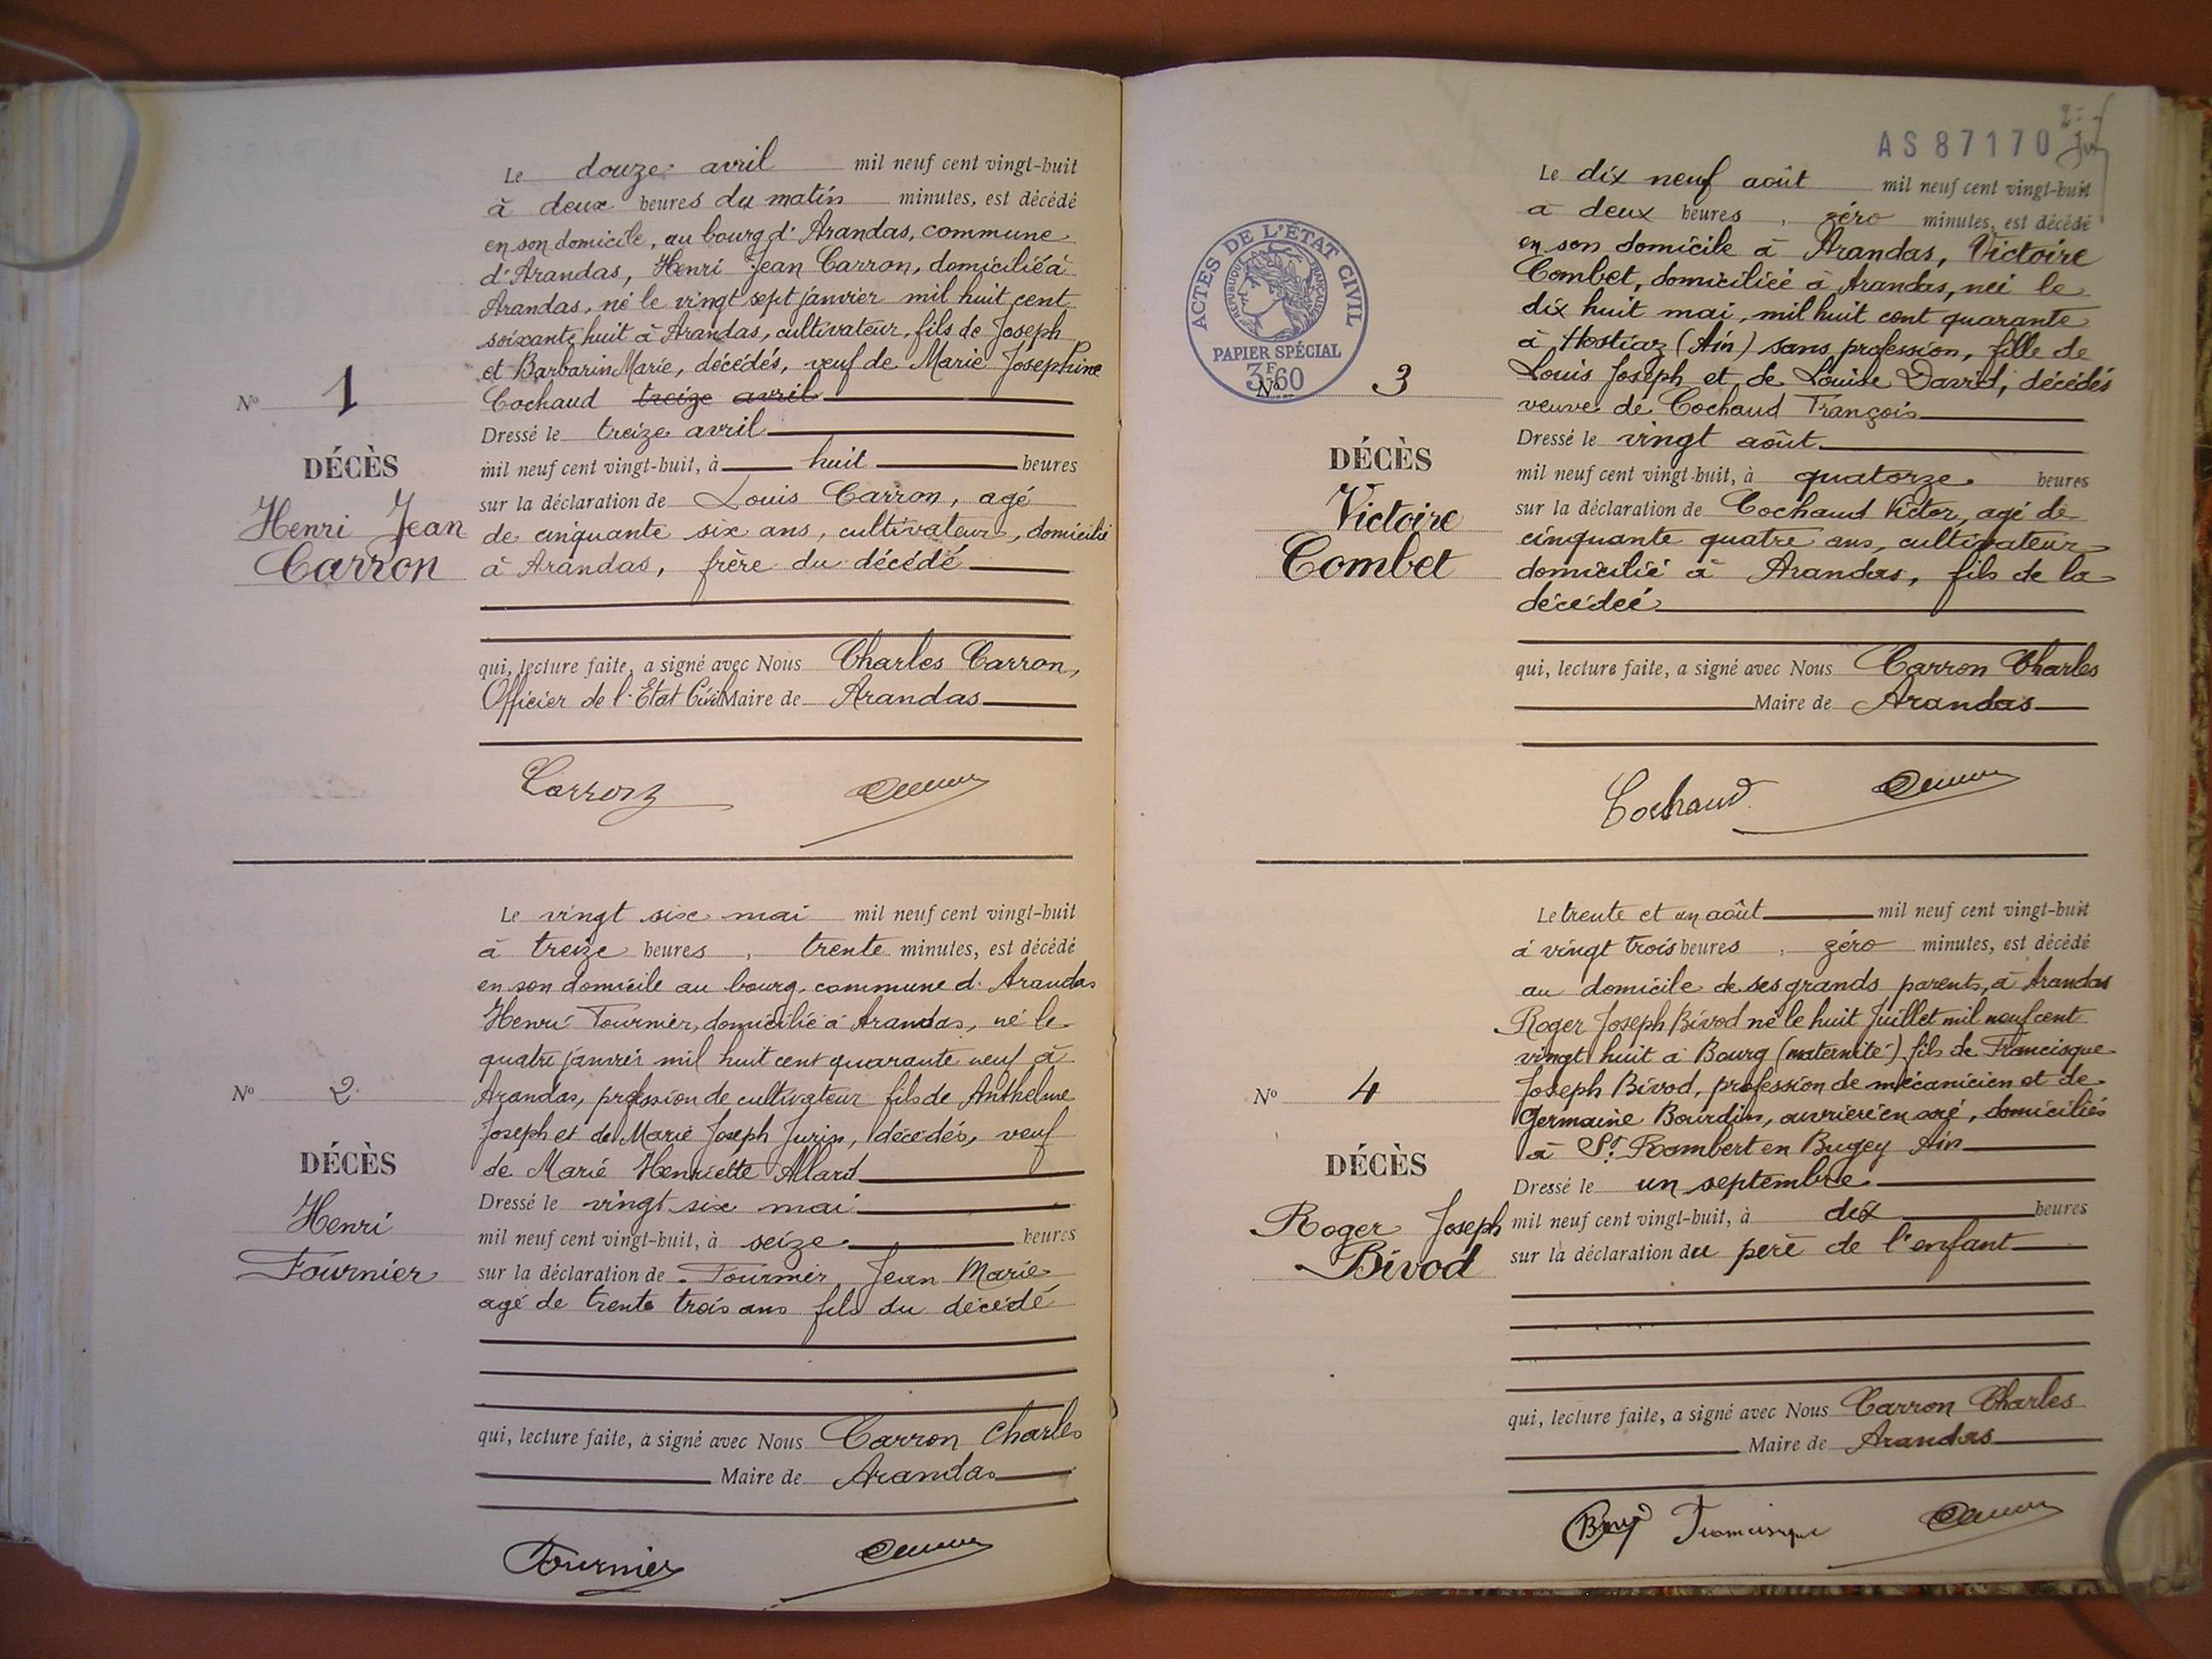 Le douze avril mil neuf cent vingt-huit
à deux heures du matin minutes, est décédé
en son domicile, au bourg d'Arandas, commune
d'Arandas, Henri Jean Carron, domicilié à
Arandas, né le vingt sept janvier mil huit cent
soixante huit à Arandas, cultivateur, fils de Joseph
et Barbarin Marie, décédés, veuf de Marie Josephine
Cochaud treize avril
Dressé le treize avril
mil neuf cent vingt-huit, à huit heures
sur la déclaration de Louis Carron, agé
de cinquante six ans, cultivateur, domicilié
à Arandas, frère du décédé
qui, lecture faite, a signé avec Nous Charles Carron,
Officier de l'Etat Civil Maire de Arandas
Carron
N° 1
DÉCÈS
Henri Jean
Carron
Le vingt six mai mil neuf cent vingt-huit
à treize heures, trente minutes, est décédé
en son domicile au bourg, commune d'Arandas
Henri Fournier, domicilié à Arandas, né le
quatre janvier mil huit cent quarante neuf à
Arandas, profession de cultivateur fils de Anthelme
Joseph et de Marie Joseph Jurin, décédés, veuf
de Marie Henriette Allard
Dressé le vingt six mai
mil neuf cent vingt-huit, à seize heures
sur la déclaration de Fournier Jean Marie
agé de trente trois ans fils du décédé
qui, lecture faite, a signé avec Nous Carron Charles
Maire de Arandas
Fournier
N° 2
DÉCÈS
Henri
Fournier
AS 87170
Le dix neuf août mil neuf cent vingt-huit
à deux heures, zéro minutes, est décédé
en son domicile à Arandas, Victoire
Combet, domiciliée à Arandas, née le
dix huit mai, mil huit cent quarante
à Hostiaz (Ain) sans profession, fille de
Louis Joseph et de Louise David, décédés
veuve de Cochaud François
Dressé le vingt août
mil neuf cent vingt-huit, à quatorze heures
sur la déclaration de Cochaud Victor, agé de
cinquante quatre ans, cultivateur
domicilié à Arandas, fils de la
décédeé
qui, lecture faite, a signé avec Nous Carron Charles
Maire de Arandas
Cochaud
ACTES DE L'ÉTAT CIVIL
RÉPUBLIQUE FRANÇAISE
PAPIER SPÉCIAL
3F60
N° 3
DÉCÈS
Victoire
Combet
Le trente et un août mil neuf cent vingt-huit
à vingt trois heures, zéro minutes, est décédé
au domicile de ses grands parents, à Arandas
Roger Joseph Bivod né le huit Juillet mil neuf cent
vingt huit à Bourg (maternité) fils de Francisque
Joseph Bivod, profession de mécanicien et de
Germaine Bourdin, ouvrière en soie, domiciliés
à St Rambert en Bugey Ain
Dressé le un septembre
mil neuf cent vingt-huit, à dix heures
sur la déclaration du père de l'enfant
qui, lecture faite, a signé avec Nous Carron Charles
Maire de Arandas
Francisque
N° 4
DÉCÈS
Roger Joseph
Bivod